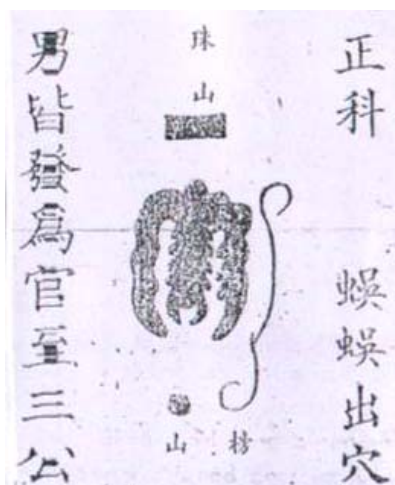 正科 蜈蜈出穴
珠山
榜山
男皆發爲官至三公